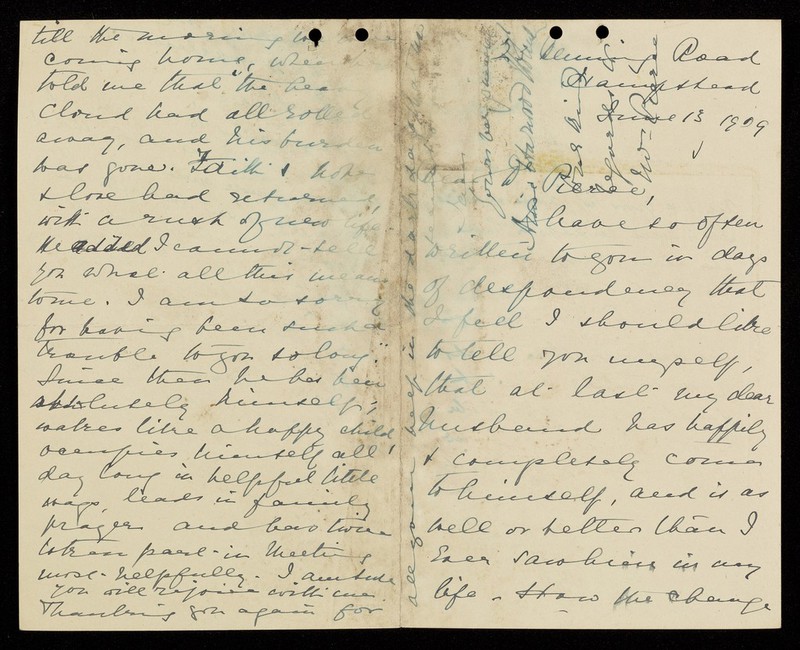 Denning Road
Hampstead
June 13 1909
Dear Dr Pierce,
I have so often
written to you in days
of despondency that
I feel I should like
to tell you myself,
that at last my dear
husband has happily
& completely come
to himself, and is as
well or better than I
Ever saw him in my
life. How the change
till the morning
coming home, when he
told me that "the
cloud had all rolled
away, and his burden
was gone. Faith & hope
& love had returned,
with a rush of new life
He added I cannot tell
you what all this means
to me. I am so sorry
for having been such a
trouble to you so long."
Since then he has been
absolutely himself;
wakes like a happy child
occupies himself all
day long in helpful little
ways, leads in family
prayer and has twice
taken part in Meeting
most helpfully. I am sure
you will rejoice with me.
Thanking you again for
all your